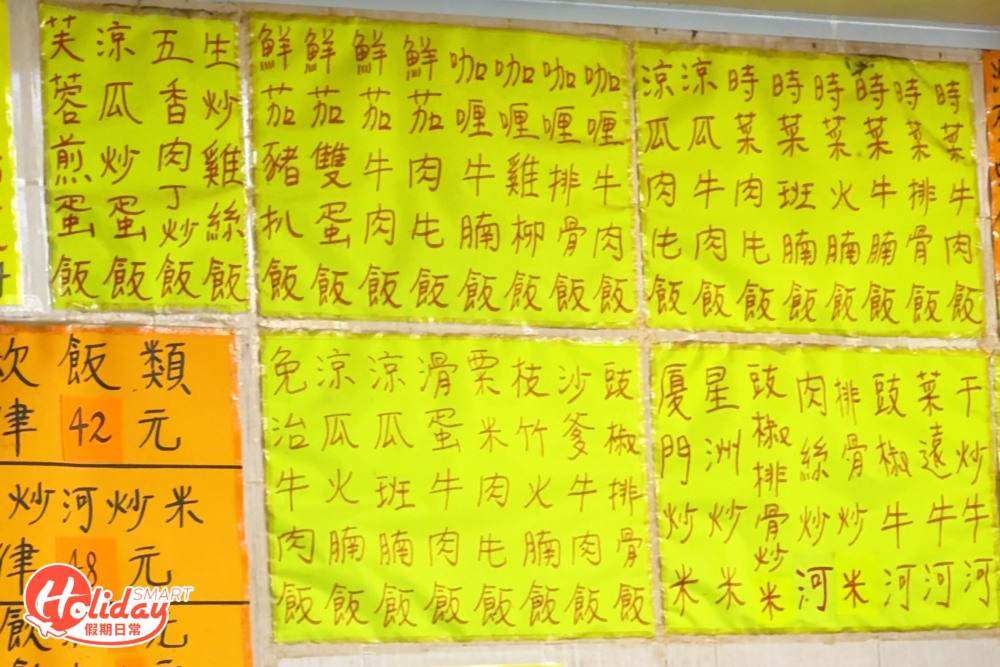 時菜牛肉飯
時菜排骨飯
時菜牛腩飯
時菜火腩飯
時菜班腩飯
時菜肉乇飯
涼瓜牛肉飯
涼瓜肉乇飯
咖喱牛肉飯
咖喱排骨飯
咖喱雞柳飯
咖喱牛腩飯
鮮茄肉乇飯
鮮茄牛肉飯
鮮茄雙蛋飯
鮮茄豬扒飯
生炒雞絲飯
五香肉丁炒飯
涼瓜炒蛋飯
芙蓉煎蛋飯
干炒牛河
菜遠牛河
豉椒牛河
排骨炒米
肉絲炒河
豉椒排骨炒米
星洲炒米
廈門炒米
豉椒排骨飯
沙爹牛肉飯
枝竹火腩飯
粟米肉乇飯
滑蛋牛肉飯
涼瓜班腩飯
涼瓜火腩飯
免治牛肉飯
飯類
42元
炒河炒米
48元
元
SMART
Holiday
假期日常